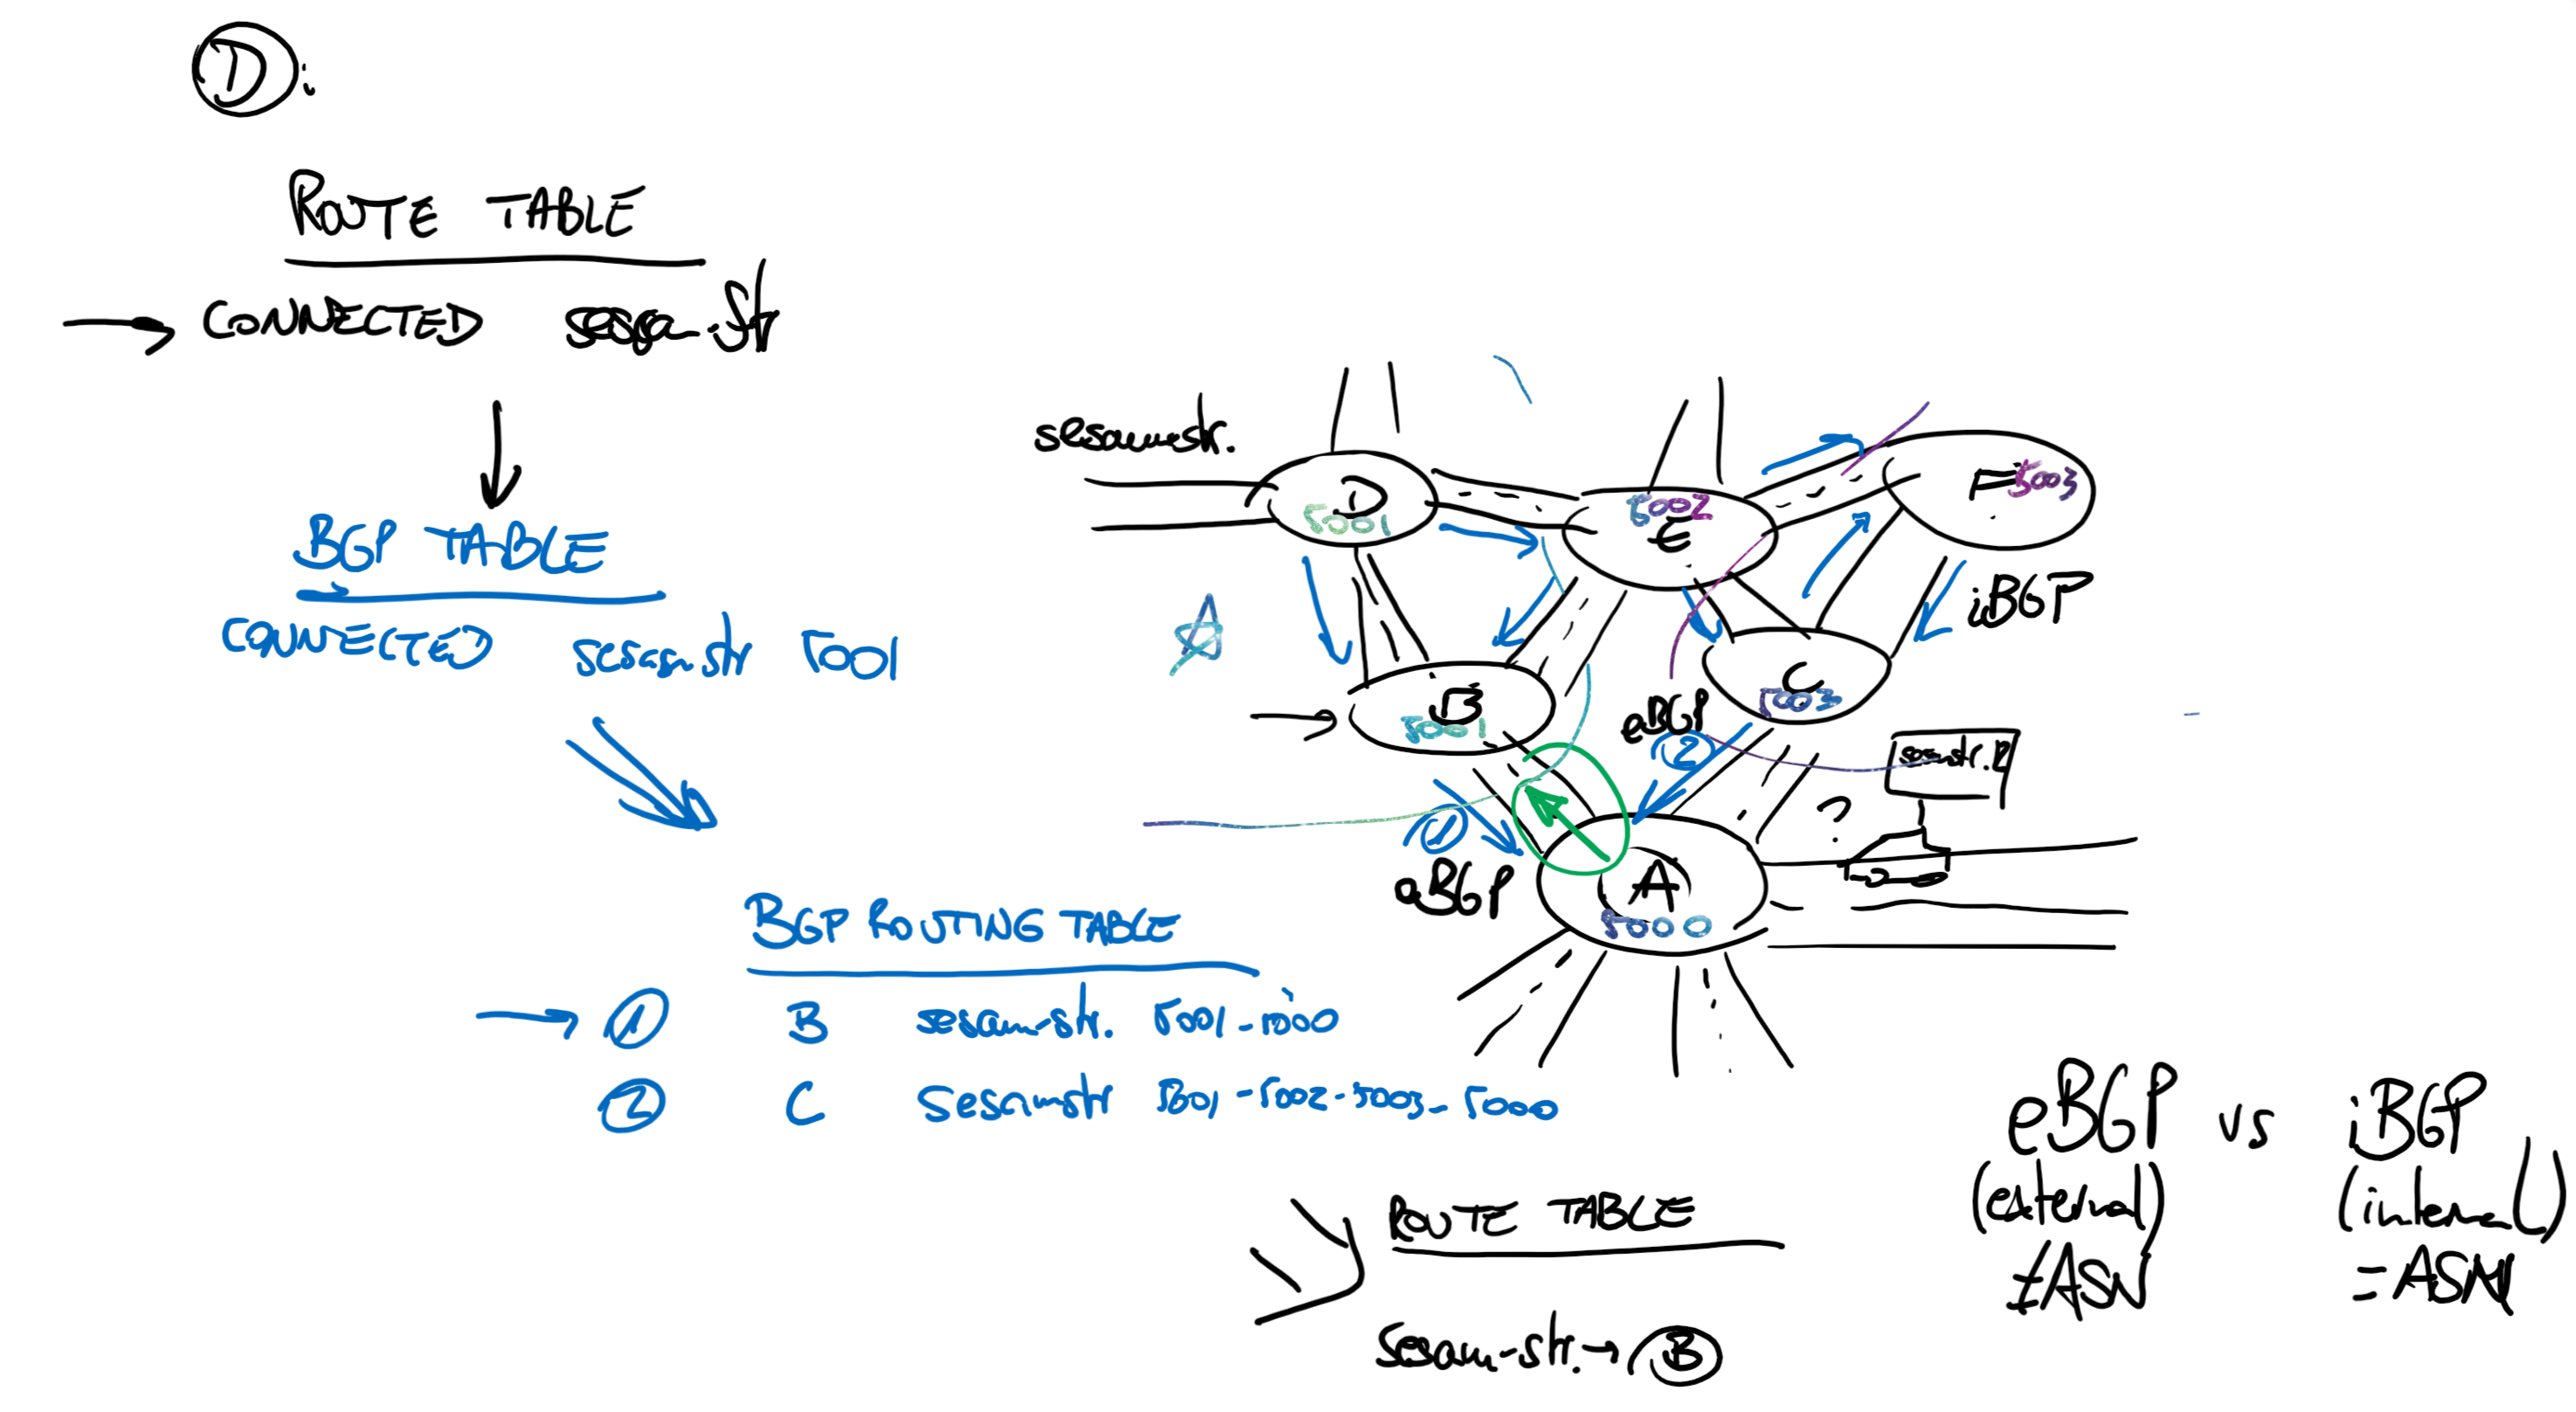 D:
ROUTE TABLE
CONNECTED sesam.str
BGP TABLE
CONNECTED sesamstr 5001
BGP ROUTING TABLE
1 B sesam-str. 5001-5000
2 C Sesamstr 5001-5002-5003-5000
ROUTE TABLE
sesam-str. → B
sesamstr.
D
5001
5002
E
F 5003
iBGP
B
5001
C
5003
eBGP
2
1
eBGP
A
5000
?
eBGP vs iBGP
(external) (internal)
≠ASN =ASN